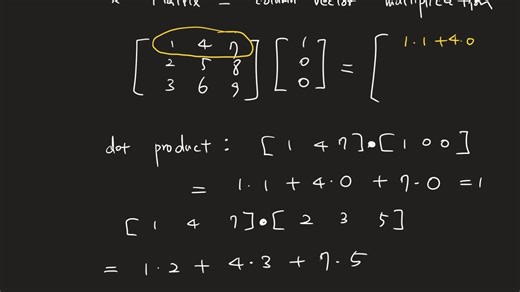 * Matrix - column vector multiplication
[ 1 4 7 ] [ 1 ] = [ 1·1 + 4·0
[ 2 5 8 ] [ 0 ]
[ 3 6 9 ] [ 0 ]
dot product : [ 1 4 7 ] • [ 1 0 0 ]
= 1·1 + 4·0 + 7·0 = 1
[ 1 4 7 ] • [ 2 3 5 ]
= 1·2 + 4·3 + 7·5